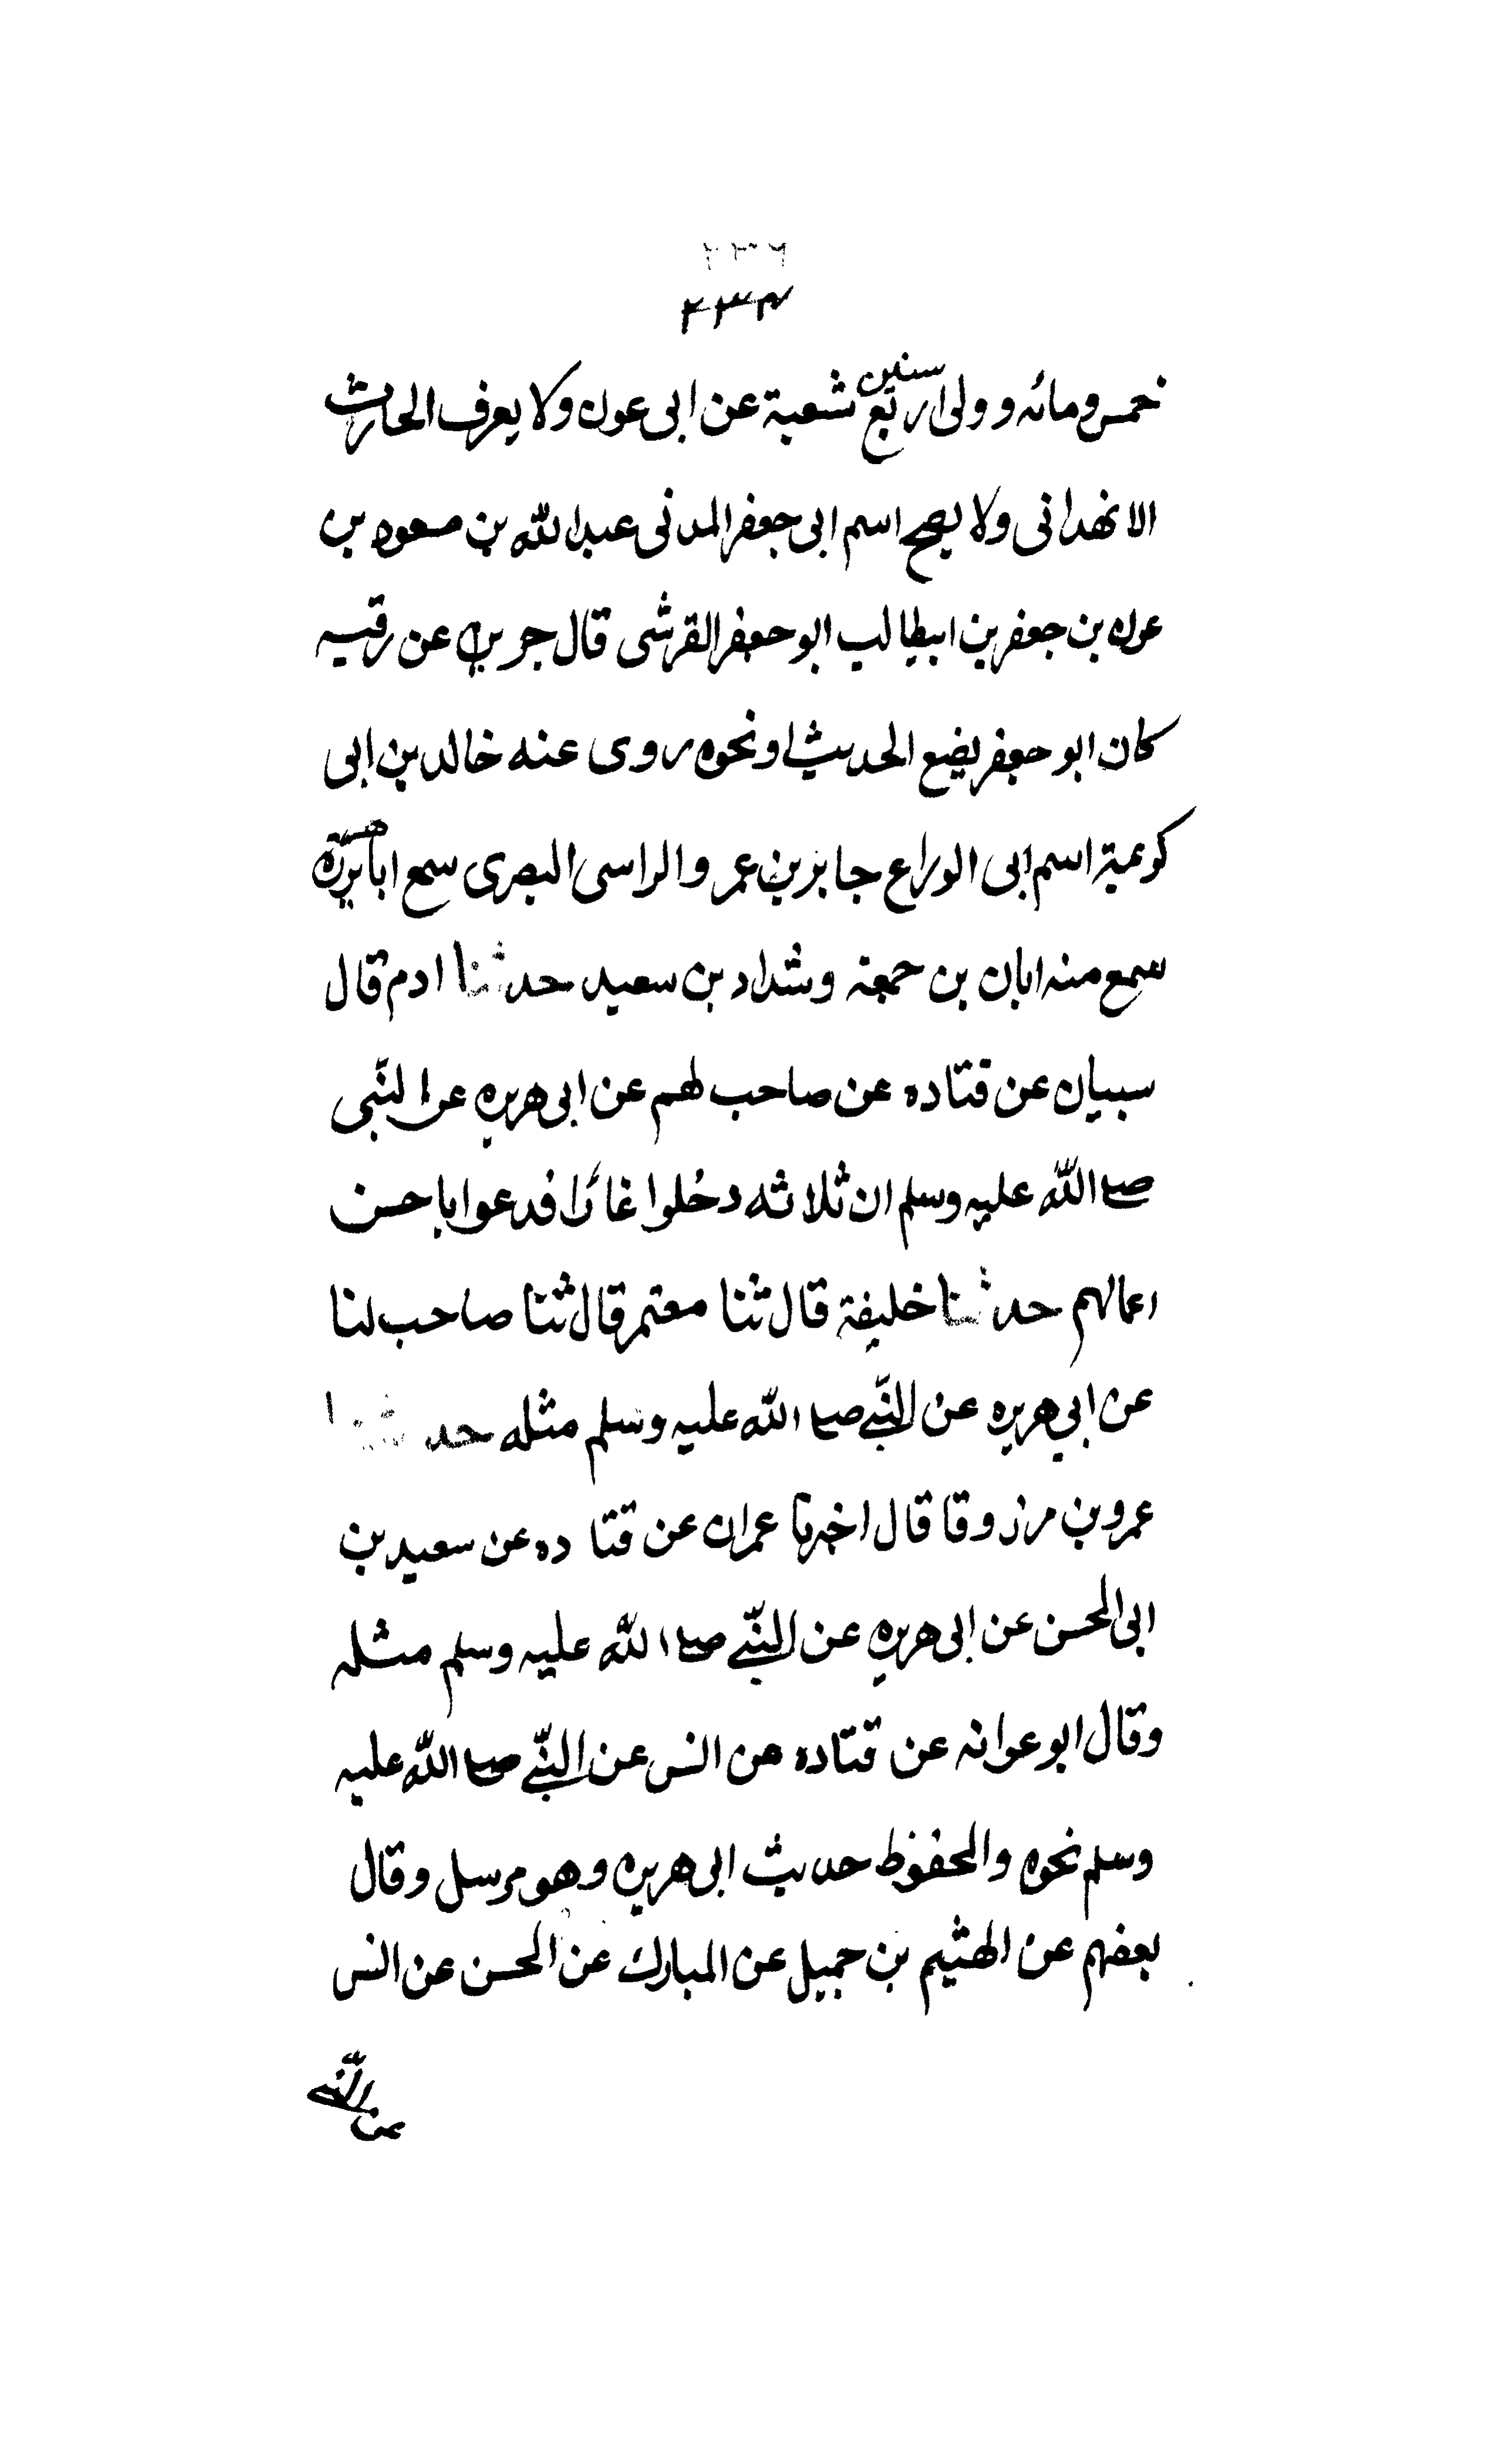 ٢٣٦
٢٣٨
خمس ومائه وولى اربع سنين شعبة عن ابى عون ولا يعرف الحارث
الا بهذا نى ولا يصح اسم ابى جعفر المدنى عبد الله بن مسعود بن
عون بن جعفر بن ابيطالب ابو جعفر القرشى قال جرير عن رقيه
كان ابو جعفر يضع الحديث او نحوه روى عنه خالد بن ابى
كريمة اسم ابى الوراع جابر بن عمر والراسى البصرى سمع ابا برزة
سمع منه ابان بن حمعه وشداد بن سعيد حدثنا ادم قال
سيبان عن قتاده عن صاحب لهم عن ابى هريره عن النبى
صلى الله عليه وسلم ان ثلاثه دخلوا غائرا فدعوا باحسن
اعمالهم حدثنا خليفة قال ثنا معتمر قال ثنا صاحب لنا
عن ابي هريره عن النبى صلى الله عليه وسلم مثله حدثنا
عمرو بن مرزوقا قال اخبرنا عمران عن قتاده عن سعيد بن
ابى الحسن عن ابى هريره عن النبى صلى الله عليه وسلم مثله
وقال ابو عوانه عن قتاده عن انس عن النبى صلى الله عليه
وسلم نحوه والمحفوظ حديث ابى هريره وهو مرسل وقال
بعضهم عن الهثيم بن جميل عن المبارك عن الحسن عن انس
عن النبى